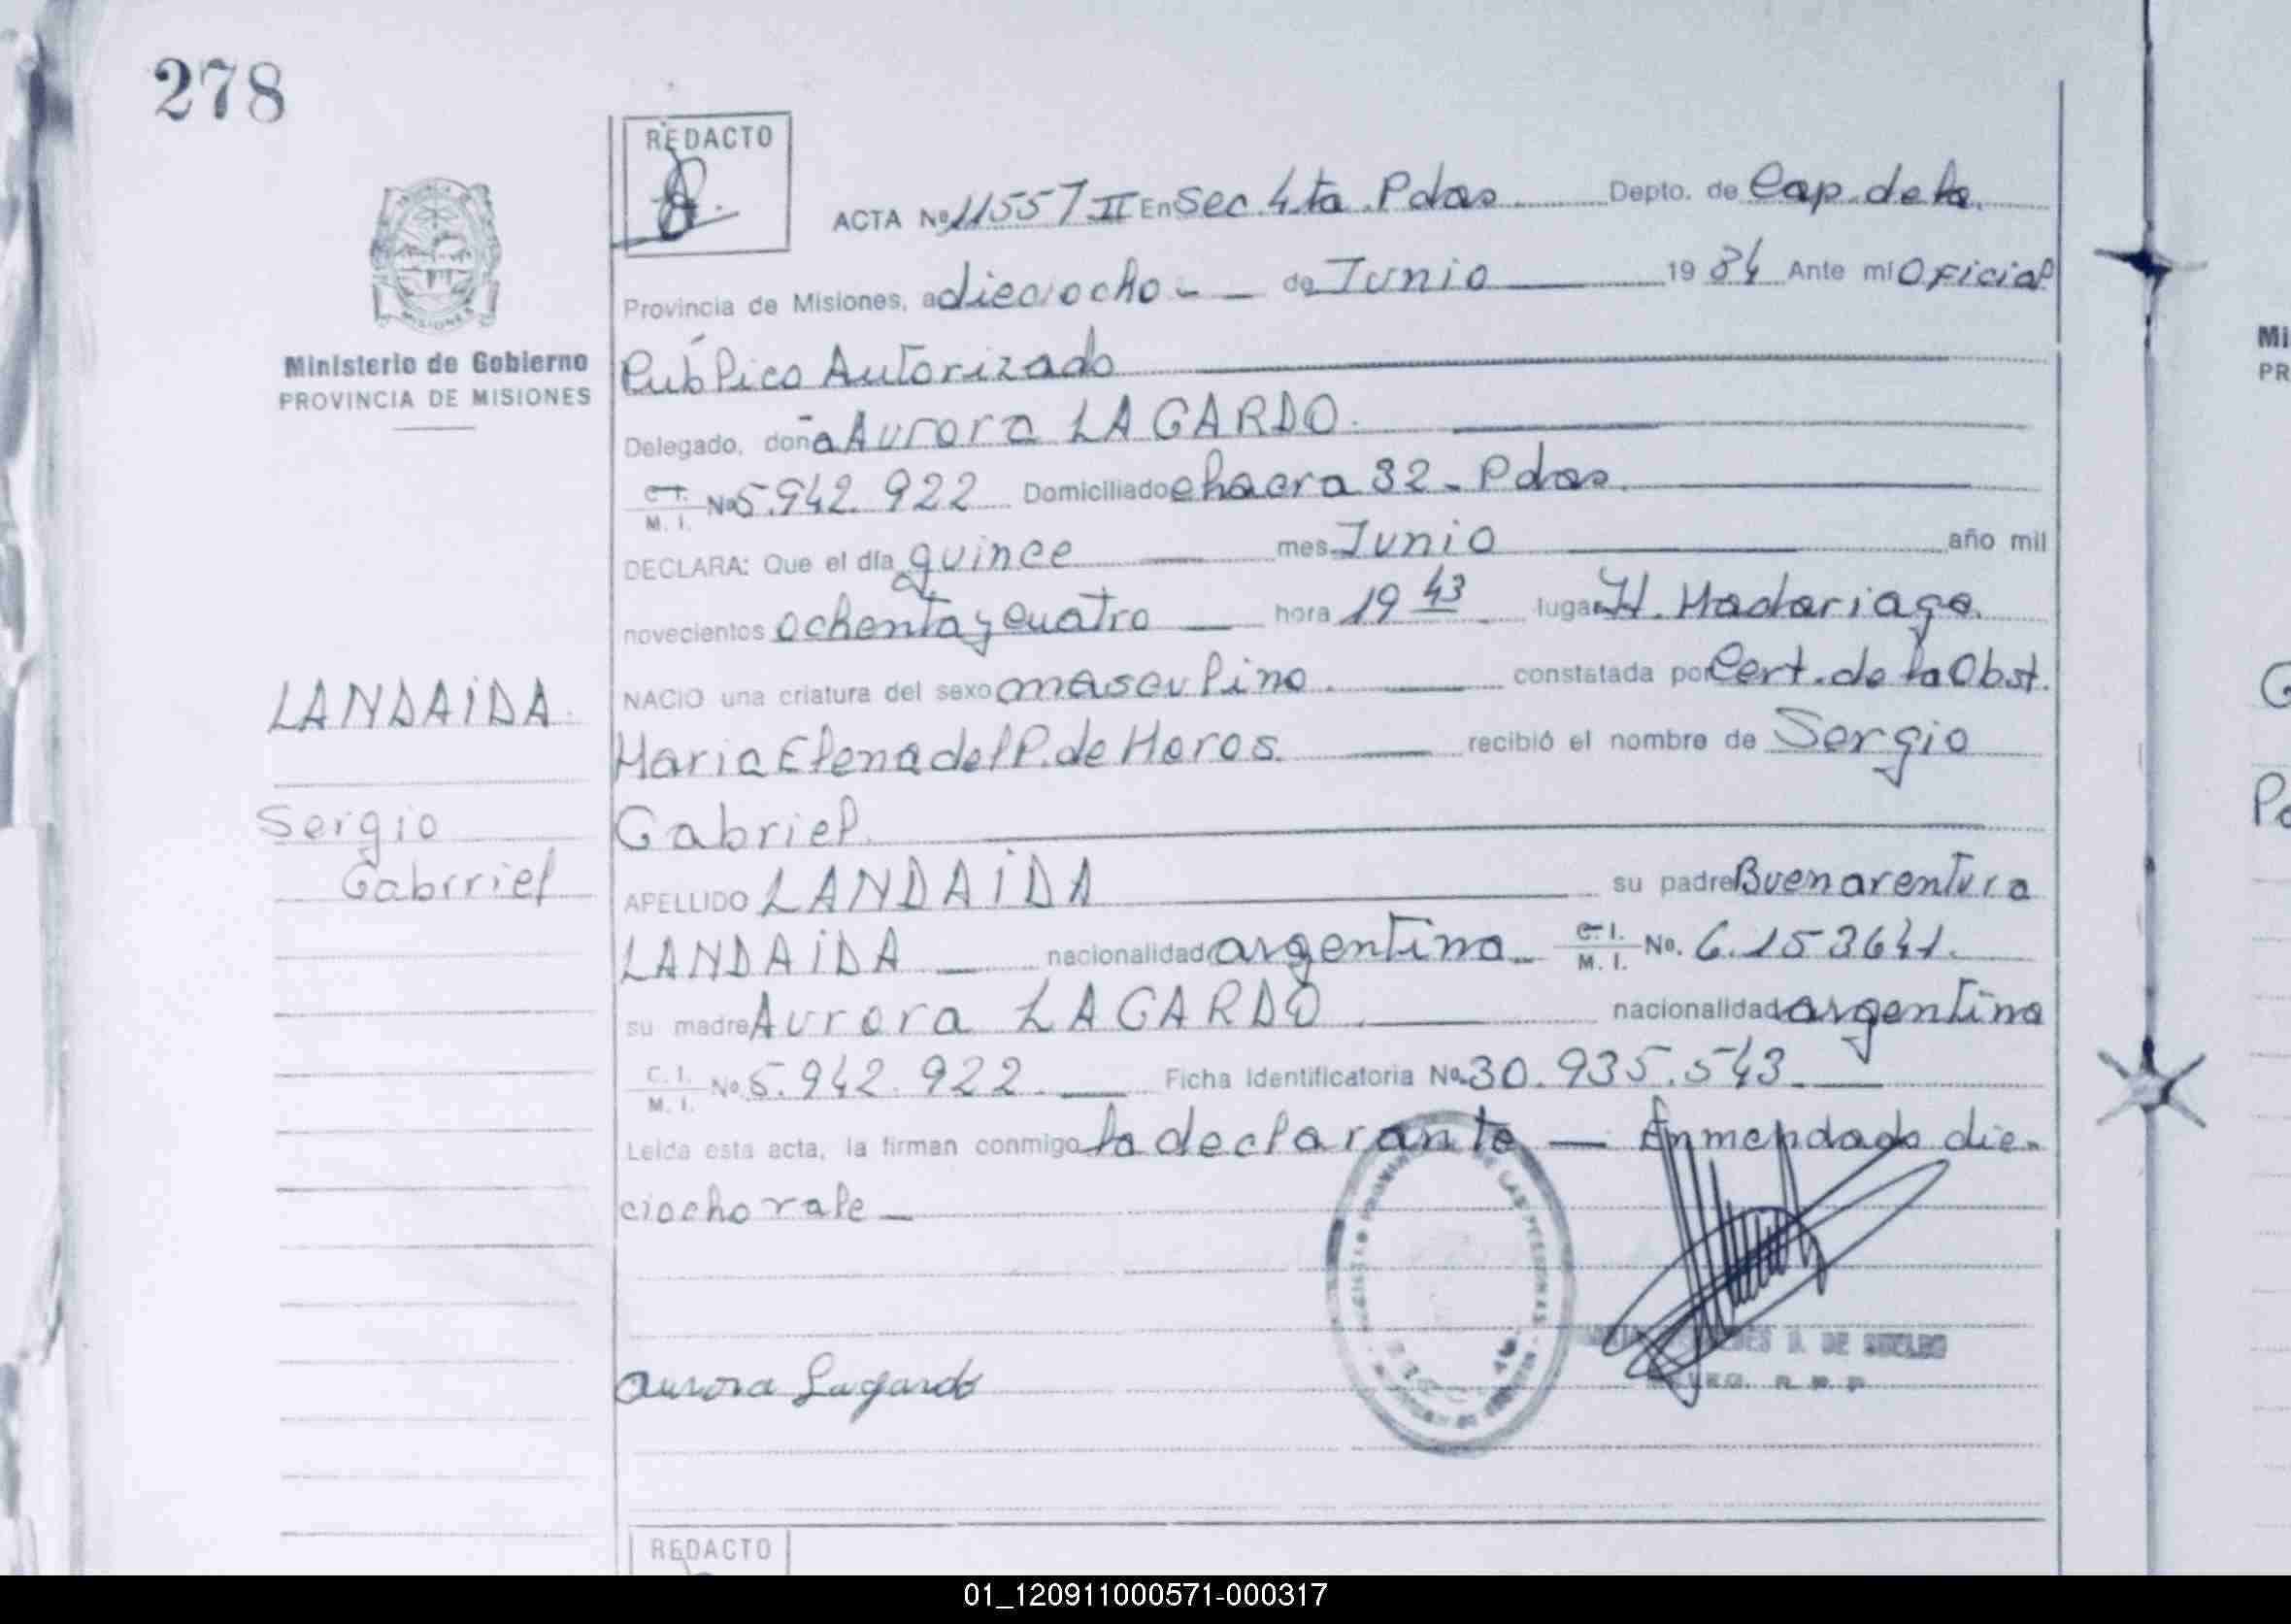 278
REDACTO
ACTA Nº 11557 II En Sec. 4ta. Pdas Depto. de Cap. de la
Provincia de Misiones, a dieciocho - - de Junio 1984 Ante mí Oficial
Público Autorizado
Delegado, doña Aurora LAGARDO.
C.I. M.I. Nº 5.942.922 Domiciliado chacra 32 - Pdas.
DECLARA: Que el día quince mes Junio año mil
novecientos ochenta y cuatro hora 19 43 lugar H. Madariaga.
NACIO una criatura del sexo masculino. constatada por Cert. de la Obst.
Maria Elena del P. de Heros. recibió el nombre de Sergio
Gabriel.
APELLIDO LANDAIDA su padre Buenaventura
LANDAIDA nacionalidad argentina C.I. M.I. No. 6.153641.
su madre Aurora LAGARDO nacionalidad argentina
C.I. M.I. No. 5.942.922. Ficha Identificatoria No. 30.935.543.
Leída esta acta, la firman conmigo la declarante — Enmendado die-
ciocho vale —
Aurora Lagardo
DE LAS PERSONAS
DE SUELDO
R.P.P.
MISIONES
Ministerio de Gobierno
PROVINCIA DE MISIONES
LANDAIDA.
Sergio
Gabrriel
REDACTO
Mi
PR
G
Po
01_120911000571-000317